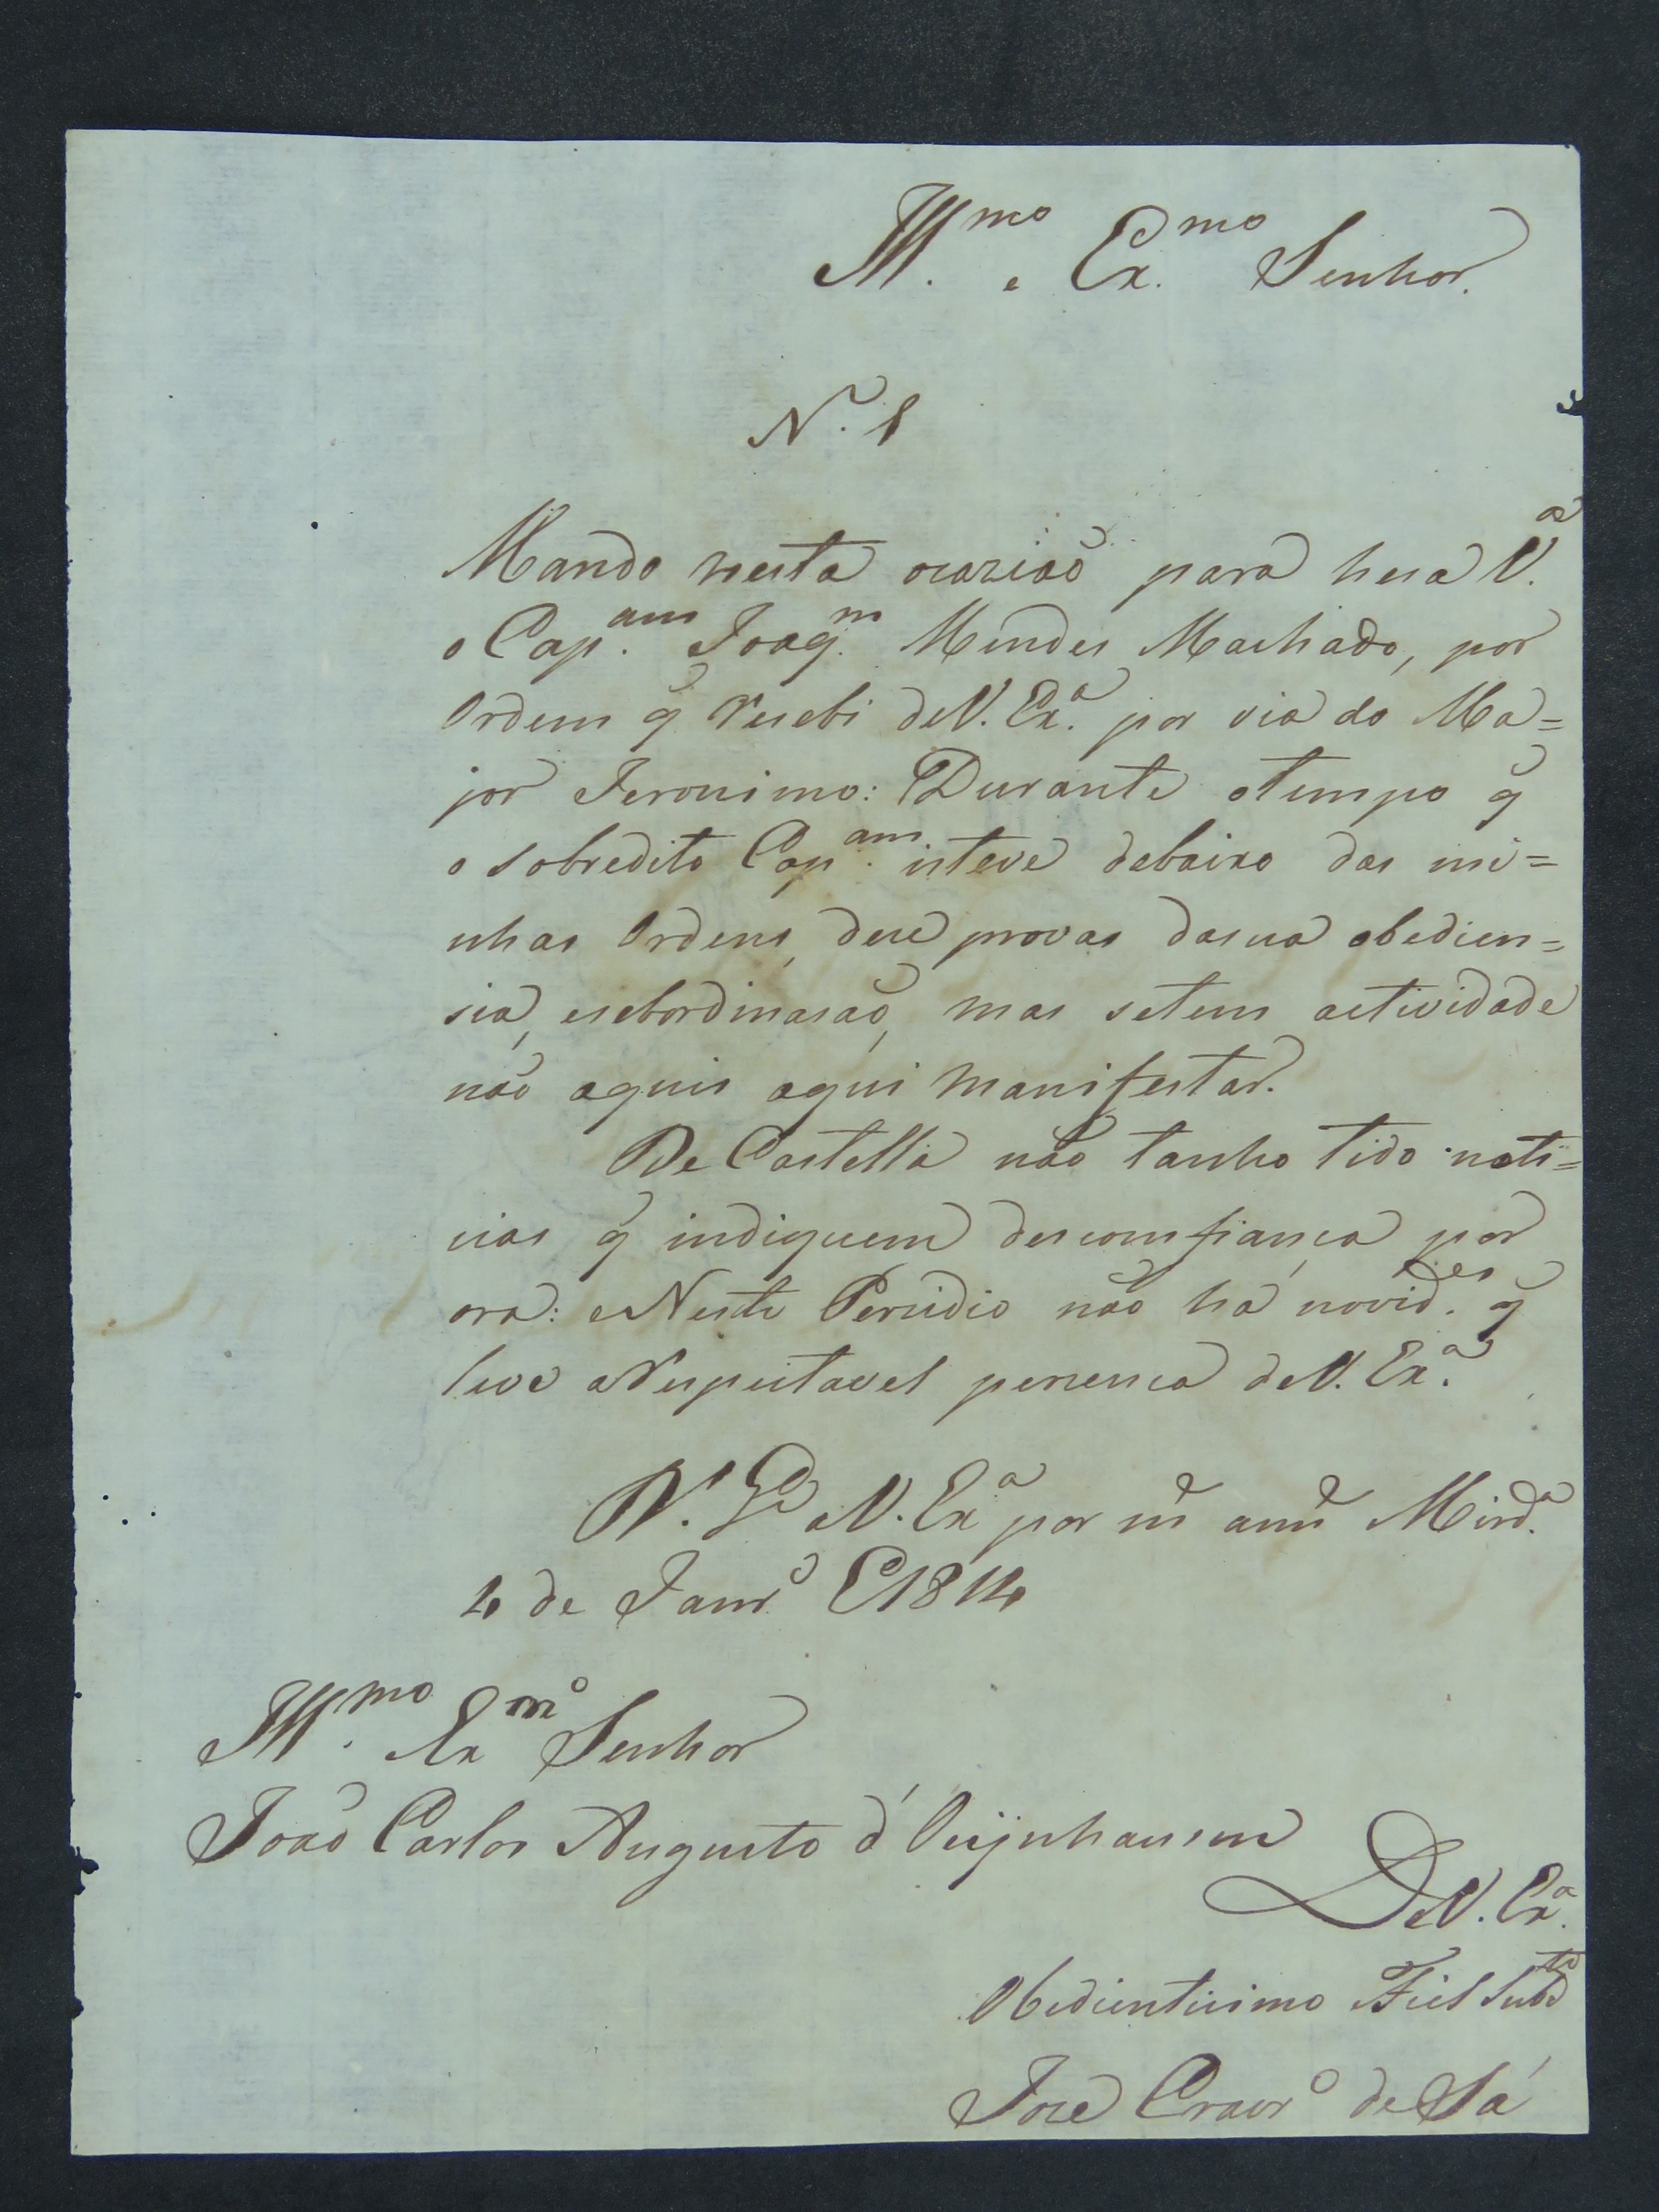 Ill.mo e Ex.mo Senhor.
N.o 1
Mando nesta ocazião para hesa V.a
o Cap.am Joaq.m Mendes Machado, por
Ordem q̃ resebi de V. Ex.a por via do Ma=
jor Jeronimo: Durante otempo q̃
o sobredito Cap.am isteve debaixo das mi=
nhas Ordens, deu provas dasua obedien=
sia, esebordinasaõ, mas setem actividade
não aquis aqui manifestar.
De Castella não tanho tido noti=
cias q̃ indiquem descomfiança por
ora: e Neste Persidio não há novid.es q̃
leve aRespeitavel persensa de V. Ex.a
D.s G.e a V. Ex.a por m.s ann.s Mird.a
4 de Janr.o E1814
Ill.mo Ex.mo Senhor
João Carlos Augusto d'Oeÿnhausen
De V. Ex.a
Obidientisimo Fiel Subd.to
Jozé Cravr.o de Sá